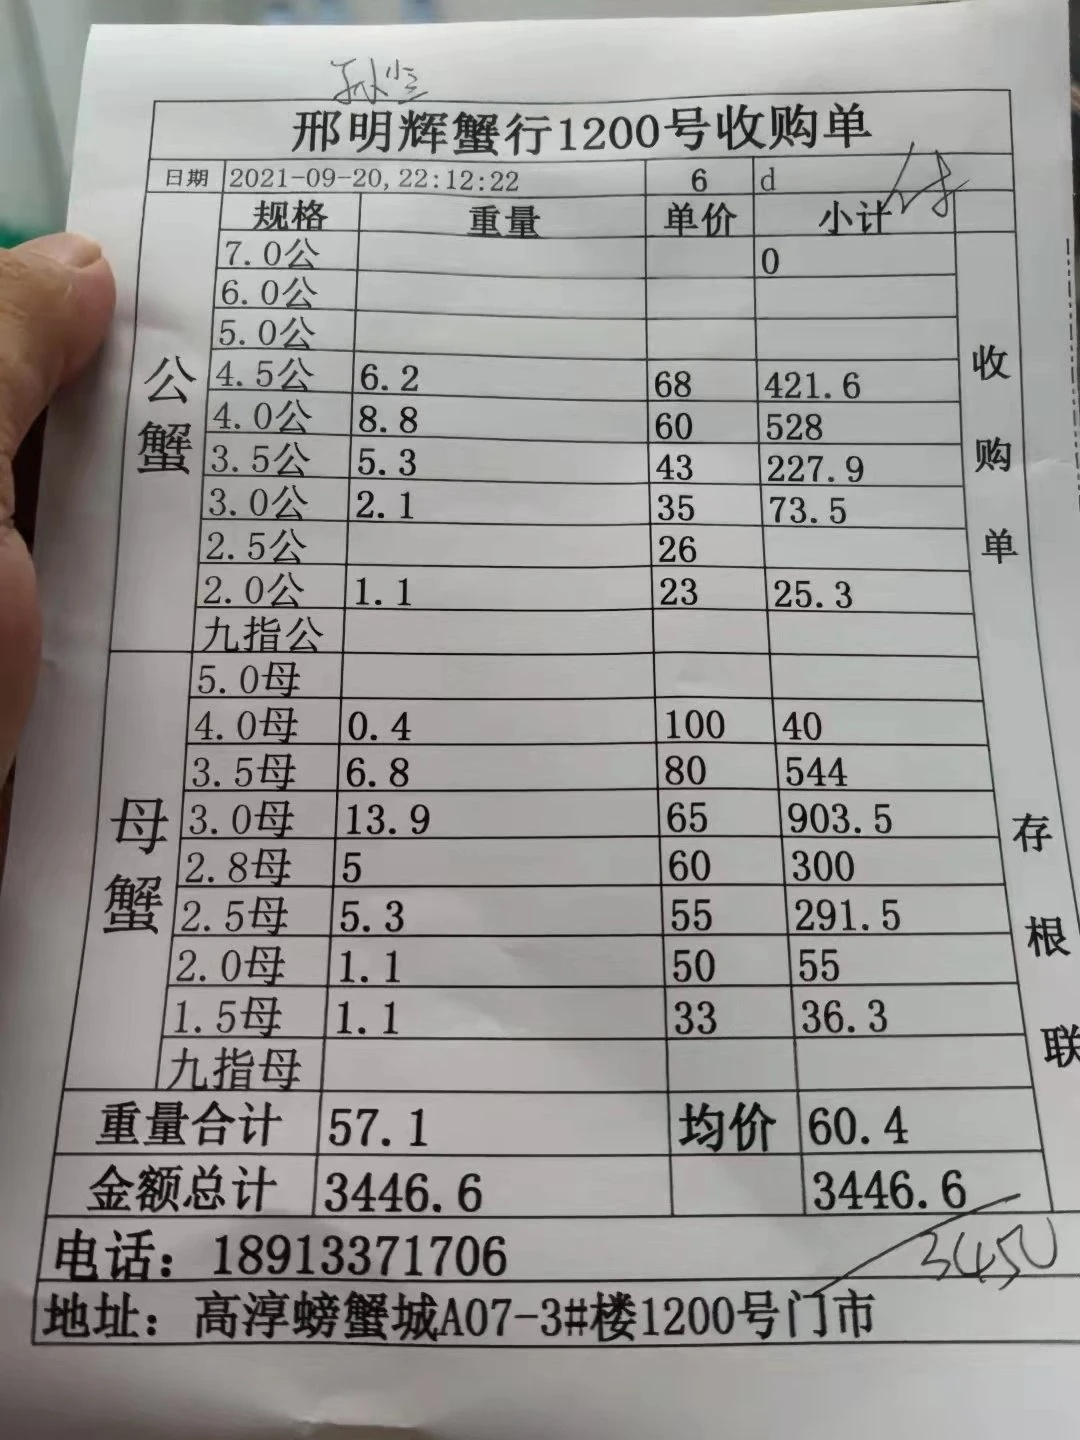 邢明辉蟹行1200号收购单
日期 2021-09-20,22:12:22 6 d
规格 重量 单价 小计
公蟹
7.0公 0
6.0公
5.0公
4.5公 6.2 68 421.6
4.0公 8.8 60 528
3.5公 5.3 43 227.9
3.0公 2.1 35 73.5
2.5公 26
2.0公 1.1 23 25.3
九指公
母蟹
5.0母
4.0母 0.4 100 40
3.5母 6.8 80 544
3.0母 13.9 65 903.5
2.8母 5 60 300
2.5母 5.3 55 291.5
2.0母 1.1 50 55
1.5母 1.1 33 36.3
九指母
收购单
存根联
重量合计 57.1 均价 60.4
金额总计 3446.6 3446.6
3450
电话：18913371706
地址：高淳螃蟹城A07-3#楼1200号门市